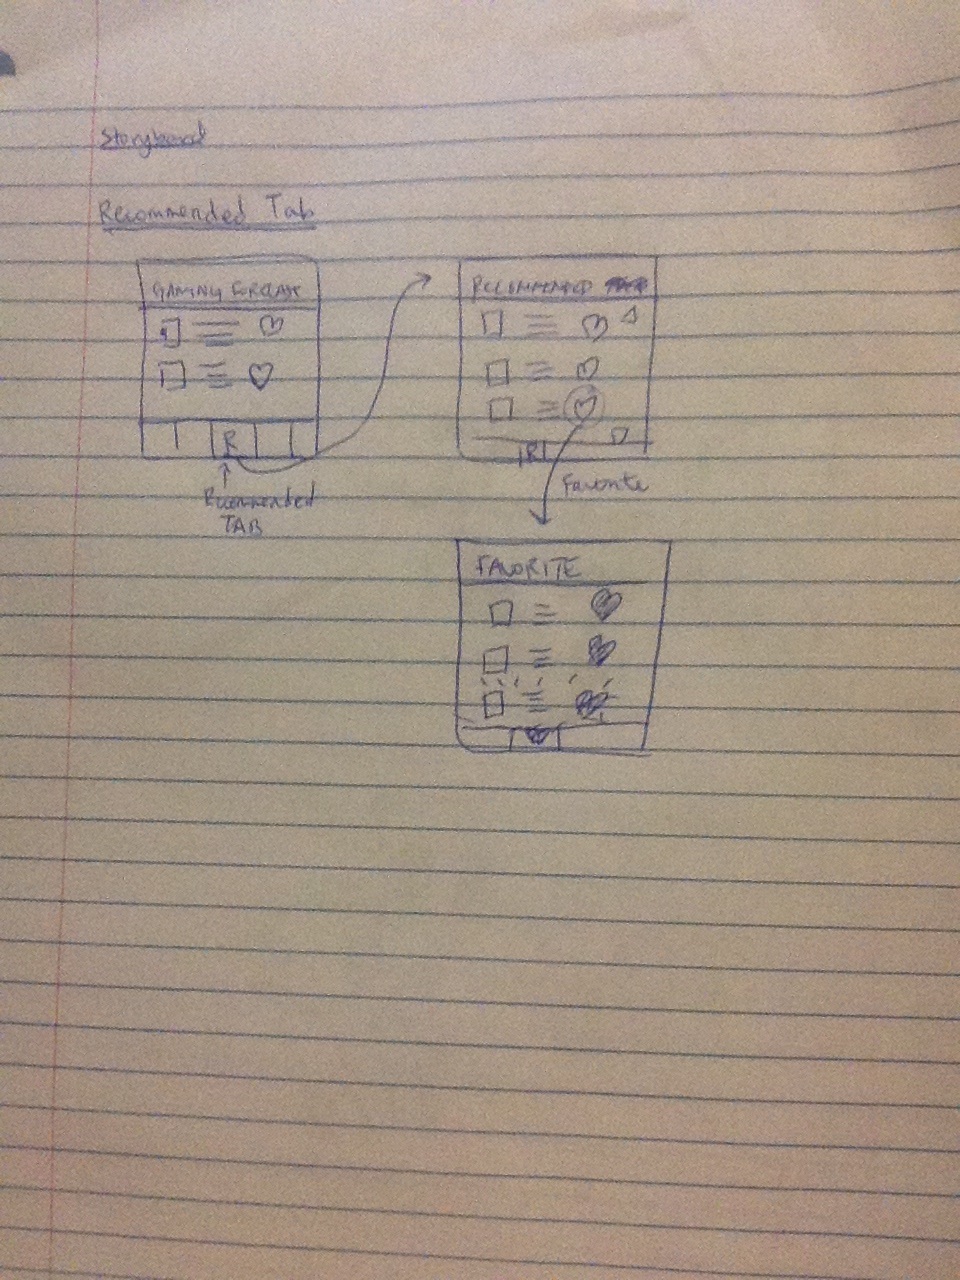 Storyboard
Recommended Tab
GAMING FORECAST
R
Recommended
TAB
RECOMMENDED
R
Favorite
FAVORITE